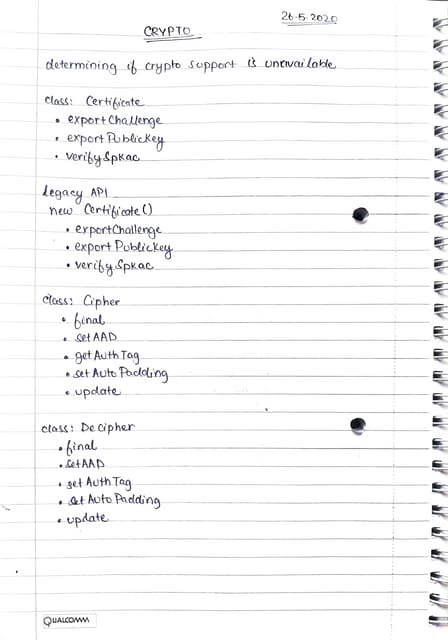 26.5.2020
CRYPTO
determining if crypto support is unavailable
class: Certificate
• exportChallenge
• exportPublicKey
• verifySpkac
Legacy API
new Certificate()
• exportChallenge
• exportPublicKey
• verifySpkac
class: Cipher
• final
• setAAD
• getAuthTag
• setAutoPadding
• update
class: Decipher
• final
• setAAD
• setAuthTag
• setAutoPadding
• update
QUALCOMM